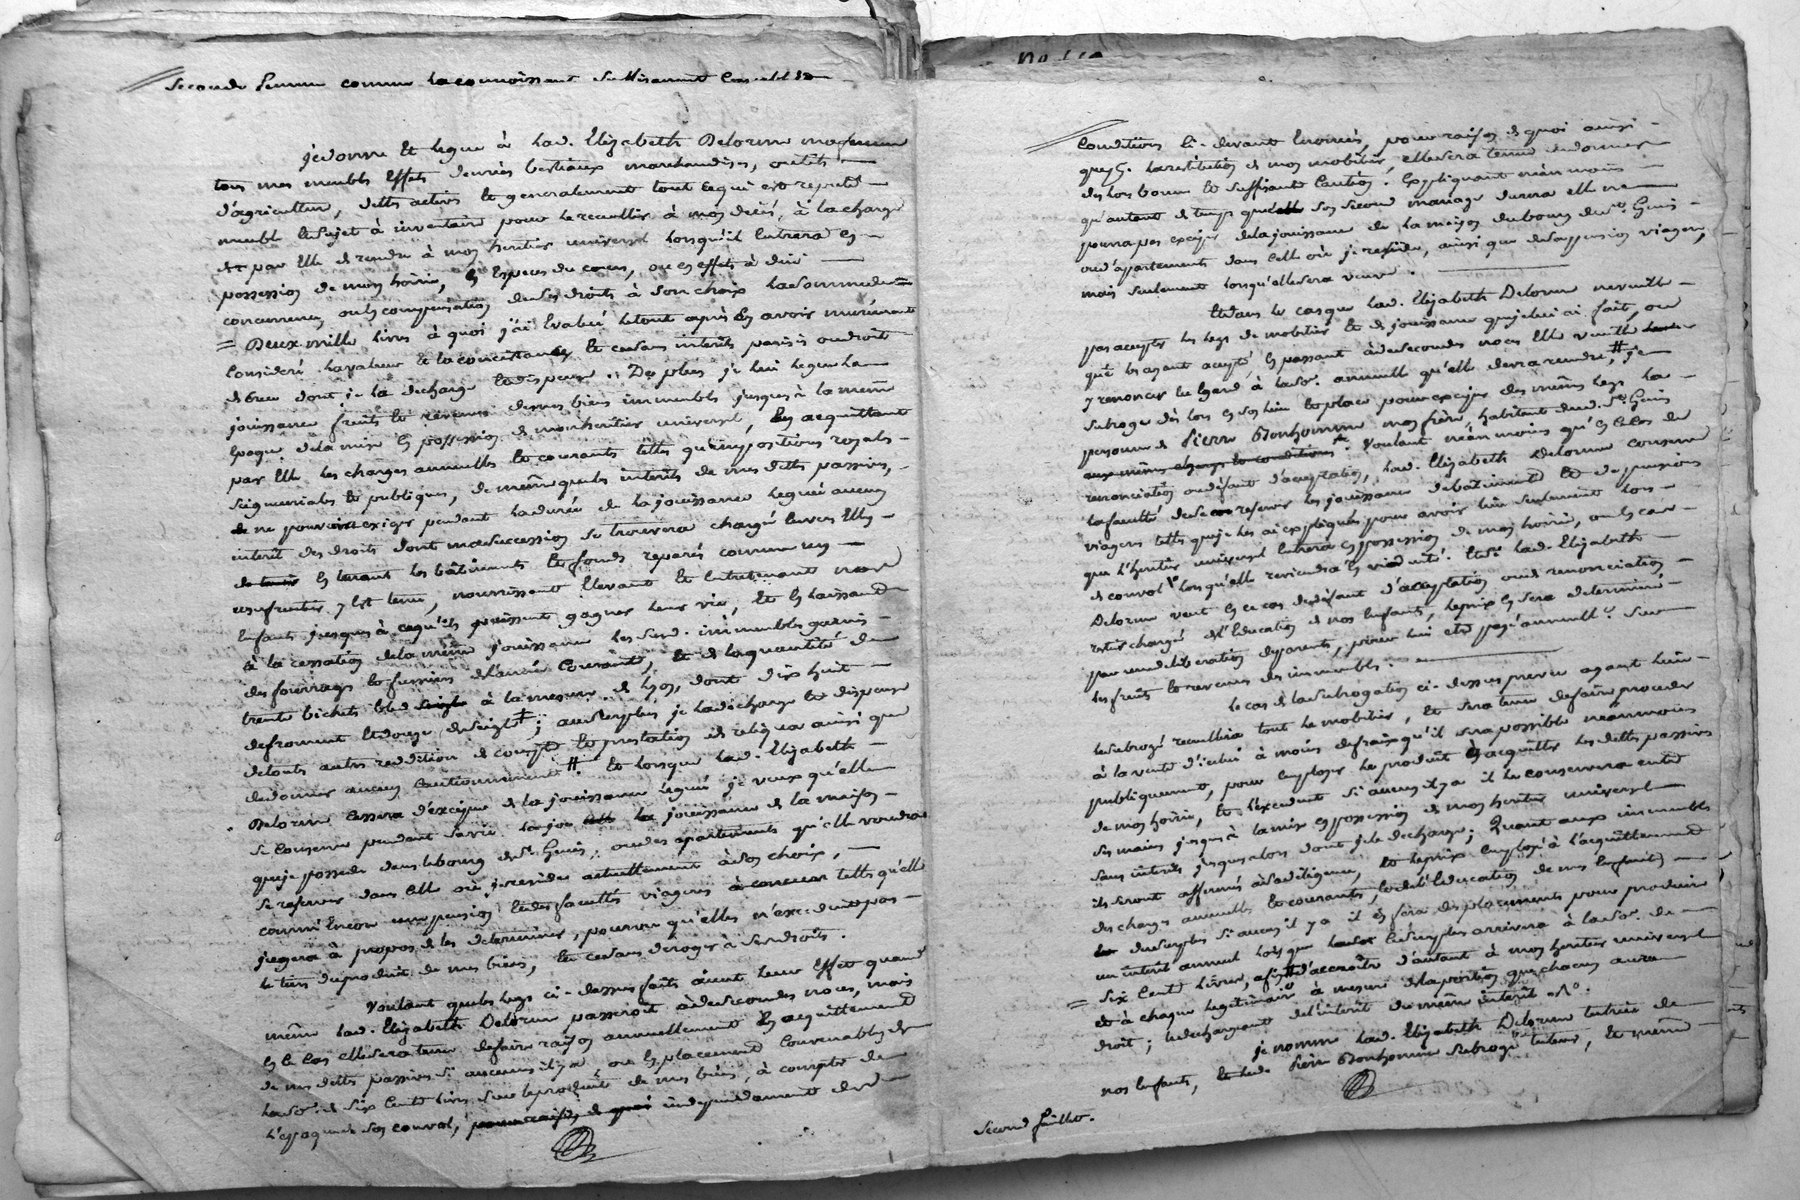 seconde femme comme la connoissant suffisament
je donne et legue à lad. Elizabeth Delorme ma femme
tous mes meubles effets denrées bestiaux marchandises, outils
d'agriculture, dettes actives et generalement tout ce qui est reputé
meuble et sujet à inventaire pour le recueillir à mon décès, à la charge
par elle de rendre à mon heritier universel lorsqu'il entrera en
possession de mon hoirie, en especes du cours, ou en effets à due
concurrence ou en compensation de ses droits à son choix la somme de
Deux mille livres à quoi j'ai evalué le tout après en avoir murement
consideré la valeur et la consistance et ce sans interêts
dont je la decharge et dispense. De plus je lui legue la
jouissance fruits et revenus de mes biens immeubles jusques à la même
epoque de la mise en possession de mon heritier universel, en acquittant
par elle les charges annuelles et courantes telles qu'impositions royales
seigneuriales et publiques, de même que les interêts de mes dettes passives,
ne pouvoir exiger pendant la durée de la jouissance leguée aucun
interêt des droits dont ma succession se trouvera chargé envers elle
en tenant les bâtiments et fonds reparés comme un
usufruitier y est tenu, nourrissant elevant et entretenant nos
enfants jusques à ce qu'ils puissent gagner leur vie, et en laissant
à la cessation de la même jouissance lesd. immeubles garnis
des fourrages et fumiers de l'année courante, et de la quantité de
trente bichets bled à la mesure de lyon, dont dix huit
de froment et douze de seigle; au surplus je la decharge et dispense
de toute autre reddition de compte et prestation de reliqua ainsi que
de donner aucun cautionnement. et lorsque lad. Elizabeth
Delorme cessera d'exciper de la jouissance leguée je veux qu'elle
se conserve pendant sa vie la jouissance de la maison
que je possede dans le bourg de St. Genis, ou des apartements qu'elle voudra
se reserver dans celle où je reside actuellement à son choix,
comm'encore une pension et des facultés viageres telles qu'elle
jugera à propos de les determiner, pourvu qu'elles n'excedent pas
le tiers du produit de mes biens, et ce sans deroger à ses droits.
Voulant que les legs ci-dessus faits aient leur effet quand
même lad. Elizabeth Delorme passeroit à de secondes noces, mais
en ce cas elle sera tenue de faire raison annuellement en acquittement
de mes dettes passives si aucunes il y a, ou en placement convenable de
la so. de six cent livres sur le produit de mes biens, à compter de
l'epoque de son convol, independament des
conditions ci-devant enoncées, pour raison de quoi ainsi
que de la restitution de mon mobilier, elle sera tenue de donner
des lors bonne et suffisante caution. Expliquant néanmoins
qu'autant de temps que son second mariage durera elle ne
pourra pas exciper de la jouissance de la maison du bourg de St. Genis
ou d'appartements dans celle où je reside, ainsi que de la pension viagere,
mais seulement lorsqu'elle sera veuve.
Et dans le cas que lad. Elizabeth Delorme ne veuille
pas accepter les legs de mobilier et de jouissance que je lui ai fait, ou
que les ayant accepté, en passant à de secondes noces elle veuille
y renoncer eu egard à la so. annuelle qu'elle devra rendre, je
subroge dès lors en son lieu et place pour exciper des mêmes legs la
personne de Pierre Bonhomme mon frere, habitant dud. St. Genis
aux mêmes charges et conditions. Voulant néanmoins qu'en le cas de
renonciation ou defaut d'acceptation, lad. Elizabeth Delorme conserve
la faculté de se reserver les jouissances de batiments et de pensions
viageres telles que je les ai expliqués pour avoir lieu seulement lors
que l'heritier universel entrera en possession de mon hoirie, ou en cas
de convol lorsqu'elle reviendra en viduité. Et si lad. Elizabeth
Delorme veut en ce cas de defaut d'acceptation ou de renonciation
rester chargée de l'education de nos enfants, le prix en sera determiné
par une deliberation de parents, pour lui etre payé annuellt. sur
les fruits et revenus des immeubles.
le cas de la subrogation ci-dessus prevu ayant lieu
le subrogé recueillira tout le mobilier, et sera tenu de faire proceder
à la vente d'icelui à moins de frais qu'il sera possible néanmoins
publiquement, pour employer le produit à acquitter les dettes passives
de mon hoirie, et l'excedent si aucun il y a il le conservera entre
ses mains jusques à la mise en possession de mon heritier universel
sans interêts jusques alors dont je le decharge; Quant aux immeubles
ils seront affermés à sa diligence, et le prix employé à l'acquittement
des charges annuelles et courantes, et de l'education de mes enfants
du surplus si aucun il y a il en fera des placements pour produire
un interêt annuel lors que le surplus arrivera à la so. de
six cent livres, afin d'accroitre d'autant à mon heritier universel
et à chaque legitimaire à mesure de la portion que chacun aura
droit; le dechargeant de l'interêt du même interêt
je nomme lad. Elizabeth Delorme tutrice de
nos enfants, Pierre Bonhomme subrogé tuteur, et même
second feuillet.